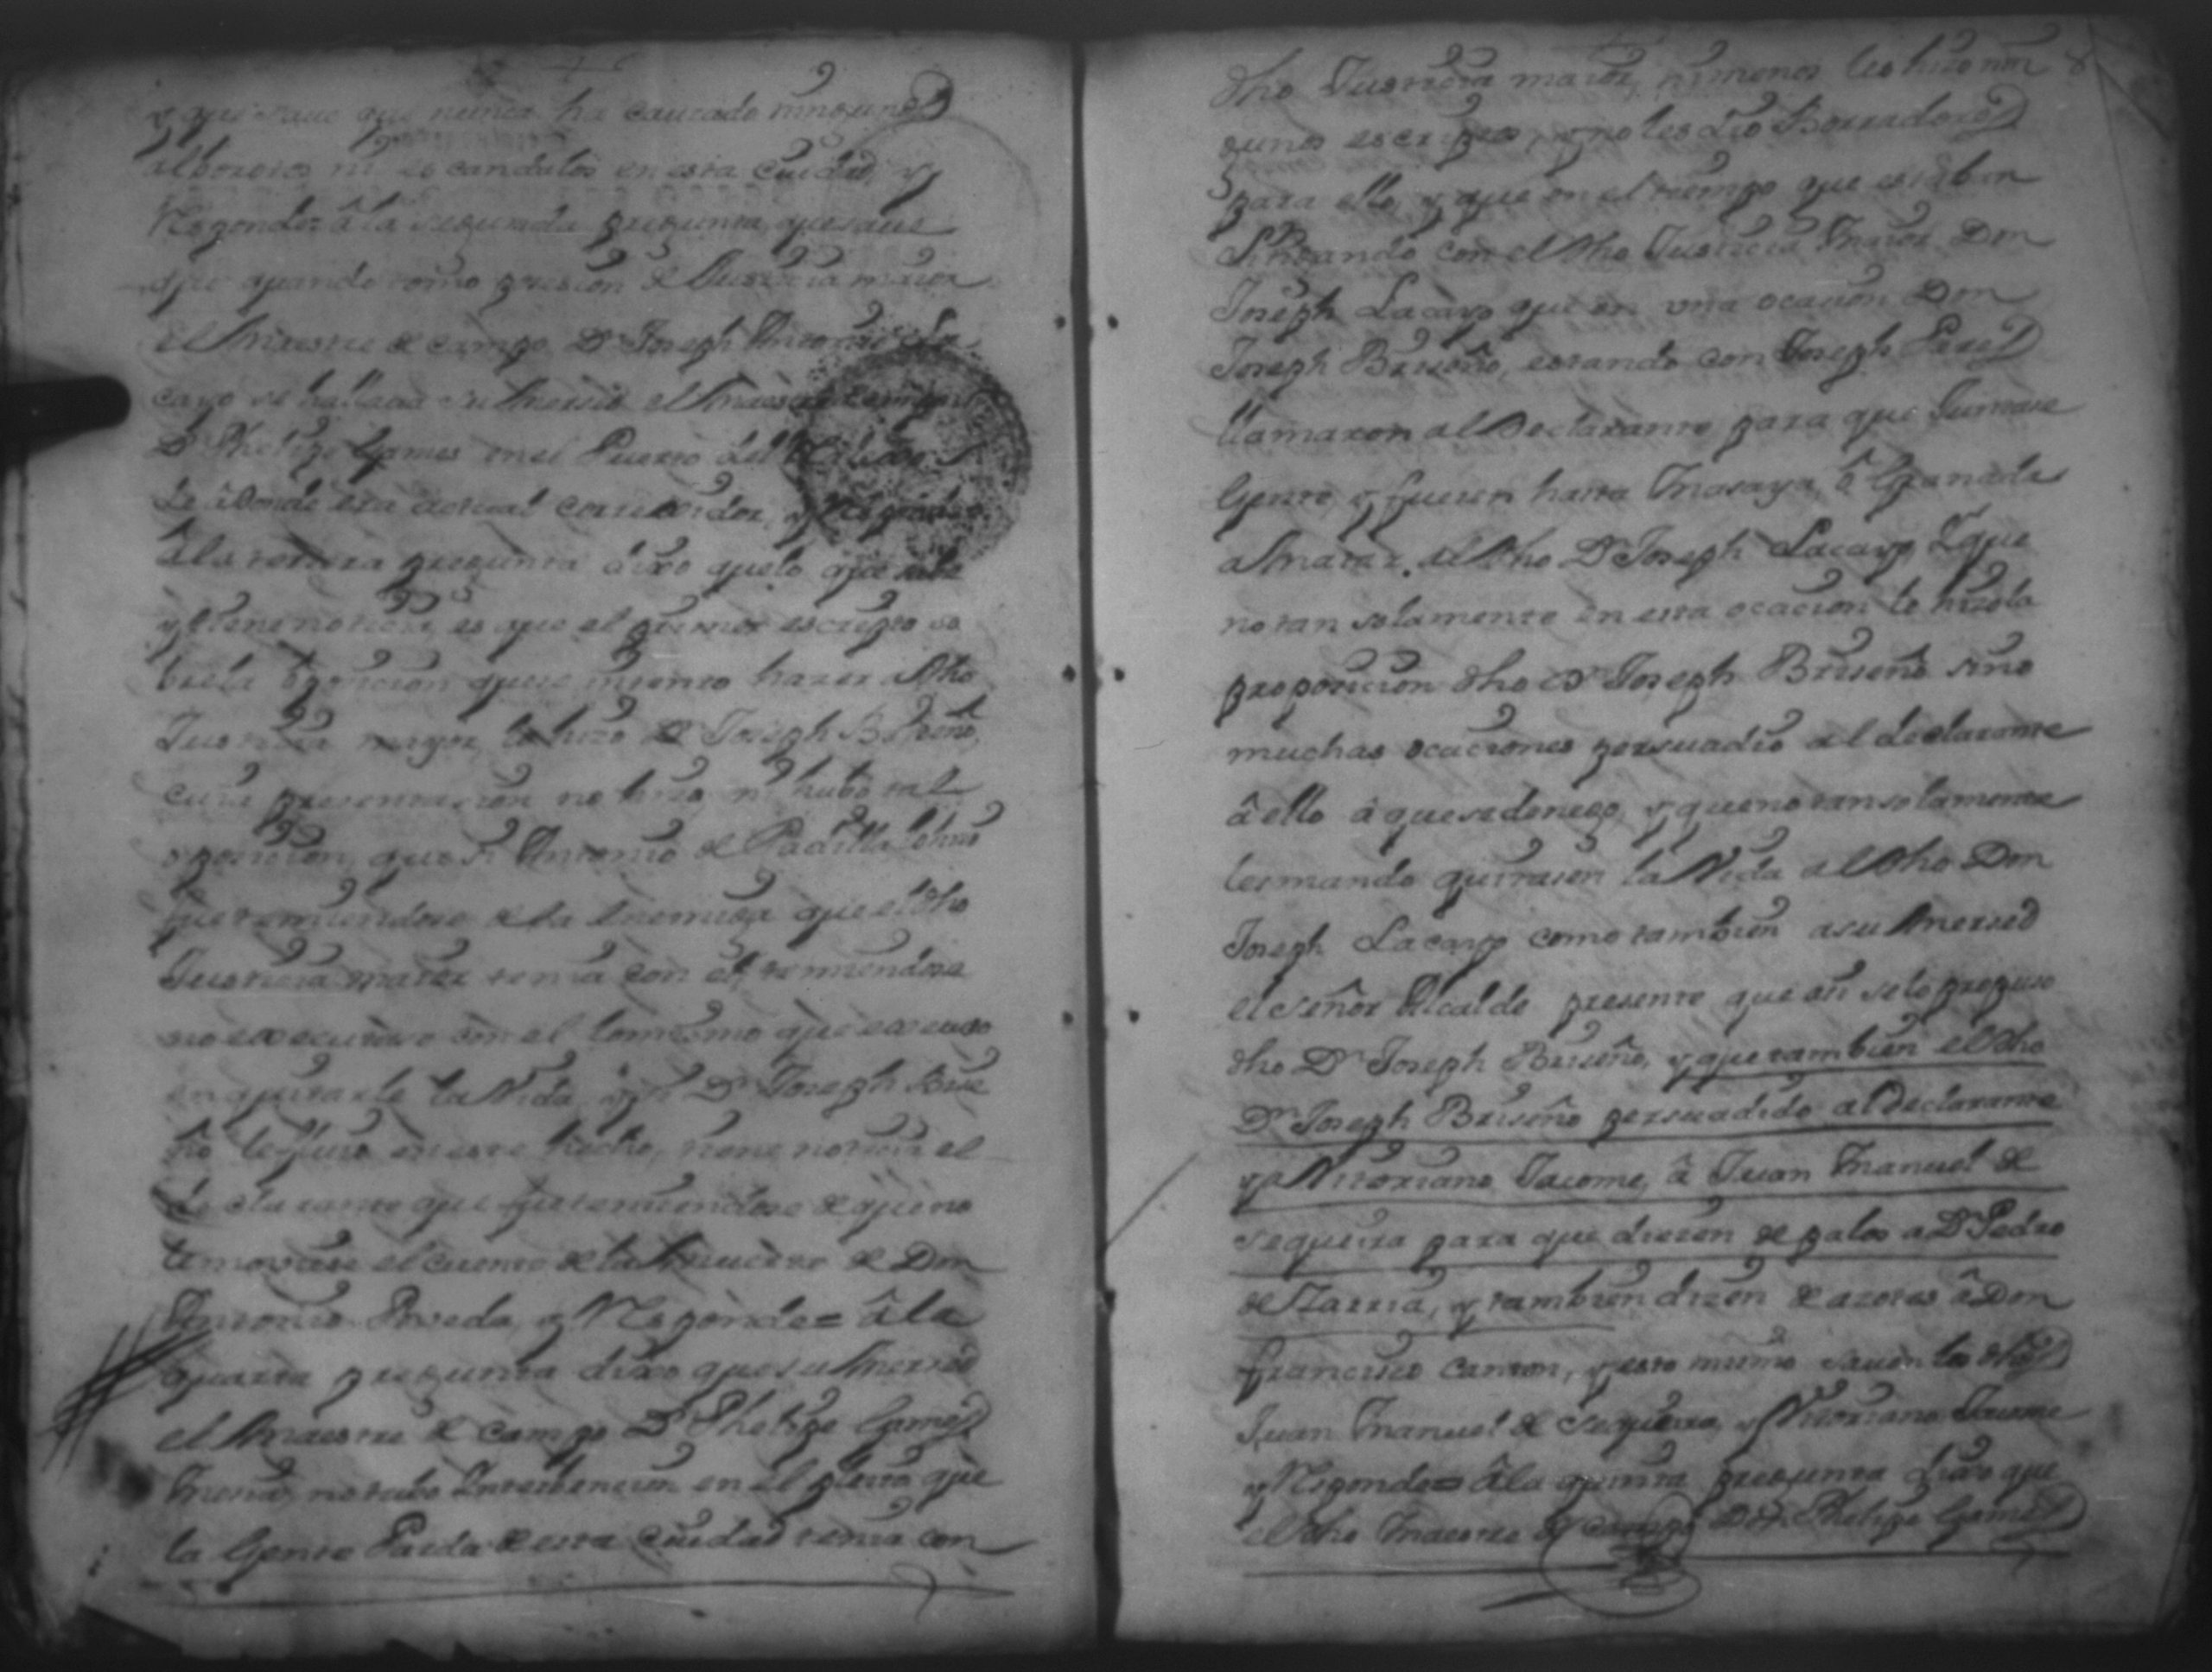 y que saue que nunca ha causado ningunos
alborotos ni escandalos en esta Ciudad, y
Responde â la segunda pregunta, que saue
que quando tomo posesion de Justicia maior
el Maestre de campo Dn Joseph Antonio La
cayo se hallaua su Merced el Maestre de campo
Dn Phelipe Games en el Puerto del
de adonde era actual corregidor, y Responde
â la tersera pregunta dixo que lo que sabe
y tiene noticia es que el primer escripto so
bre la oposicion que se intento hazer al dho
Justicia mayor lo hizo Dn Joseph Briseño,
cuia presentacion no hizo ni hubo tal
oposicion, que si Antonio de Padilla lo hizo
fue temiendose de la enemiga que el dho
Justicia maior tenia con el, temiendose
no executase con el lo mismo que executo
en quitarle la Vida, y si Dn Joseph Brise
ño lo hizo en este hecho, tiene noticia el
declarante que fue temiendose de que no
le moviese el cuento de la de Don
Antonio Poveda, y Responde = â la
quarta pregunta dixo que su Merced
el Maestre de campo Dn Phelipe Games
Mena, no tubo Interbencion en el pleito que
la Gente Parda de esta Ciudad tenia con
dho Justicia maior, ni menos les hizo nin
gunos escriptos, y no les dio Borradores
para ello, y que en el tiempo que estaban
litigando con el dho Justicia Maior Don
Joseph Lacayo que en vna ocasion Don
Joseph Briseño, estando con Joseph
llamaron al Declarante para que Juntase
Gente y fuesen hasta Masaya, ô Granada
a Matar al dho Dn Joseph Lacayo, Y que
no tan solamente en esta ocacion le hizo la
proposicion dho Dn Joseph Briseño sino
muchas ocaciones persuadio al declarante
â ello â que se denego, y que no tan solamente
les mando quitasen la Vida al dho Don
Joseph Lacayo como tambien a su Mersed
el señor Alcalde presente que asi se lo propuso
dho Dn Joseph Briseño, y que tambien el dho
Dn Joseph Briseño persuadido al Declarante
y a Vitoriano Jacome, â Juan Manuel de
sequeira para que diesen de palos a Dn Pedro
de Sarria, y tambien diesen de azotes â Don
francisco canton, y esto mismo sauen los dhos
Juan Manuel de Sequeira, y Vitoriano Jacome
y Responde = â la quinta pregunta dixo que
el dho Maestre de campo Dn Phelipe Games